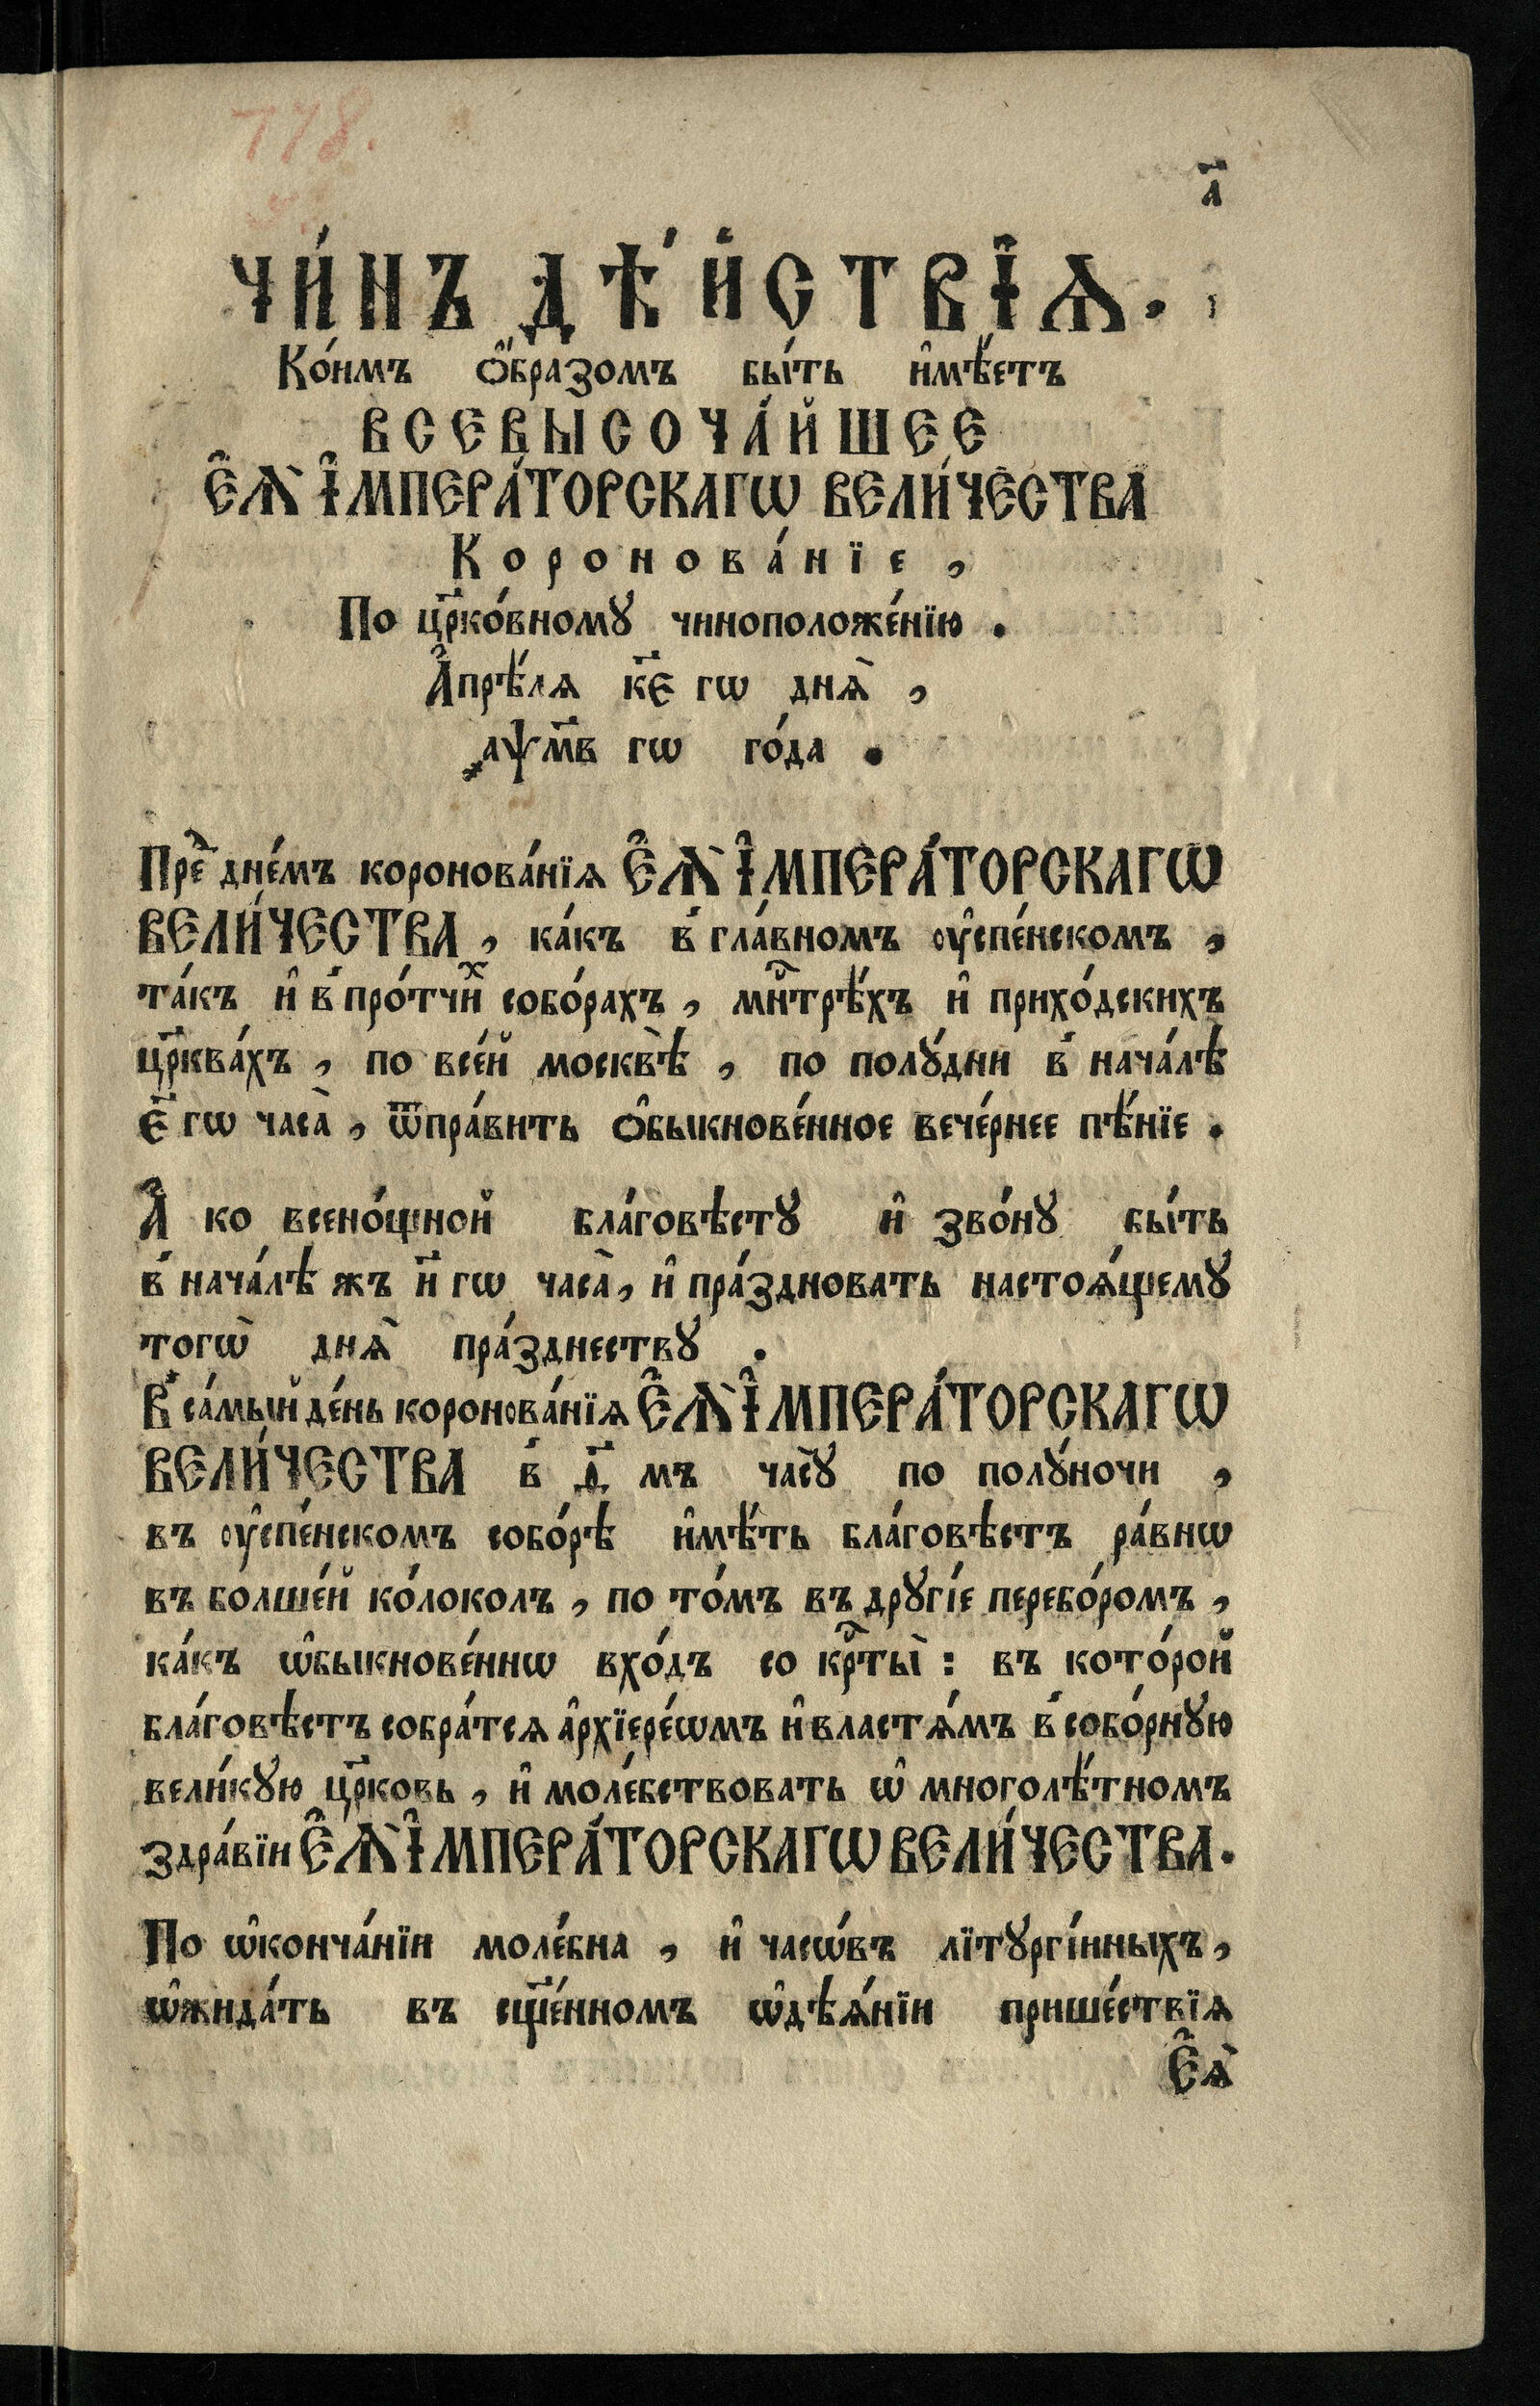 778.
а҃
ЧИ́НЪ ДѢ́ЙСТВЇѦ.
Ко́имъ ѻ҆́бразомъ бы́ть и҆мѣ́етъ
ВСЕВЫСОЧА́ЙШЕЕ
Е҆Ѧ̀ І҆МПЕРА́ТОРСКАГѠ ВЕЛИ́ЧЕСТВА
Коронова́нїе,
По цр҃ко́вному чиноположе́нїю.
А҆прѣ́лѧ к҃е гѡ днѧ̀,
҂аѱм҃в гѡ го́да.
Пред̾ дне́мъ коронова́нїѧ Е҆Ѧ̀ І҆МПЕРА́ТОРСКАГѠ
ВЕЛИ́ЧЕСТВА, ка́къ в̾ гла́вномъ ᲂу҆спе́нскомъ,
та́къ и҆ в̾ про́тчиⷯ собо́рахъ, мⷭ҇нтрѣ́хъ и҆ прихо́дскихъ
цр҃ква́хъ, по все́й москвѣ̀, по полꙋ́дни в̾ нача́лѣ
е҃ гѡ часа̀, ѿпра́вить ѻ҆быкнове́нное вече́рнее пѣ́нїе.
А҆ ко всено́щной бла́говѣстꙋ и҆ зво́нꙋ бы́ть
в̾ нача́лѣ жъ и҃ гѡ часа̀, и҆ пра́здновать настоѧ́щемꙋ
тогѡ̀ днѧ̀ пра́зднествꙋ.
В̾ са́мый де́нь коронова́нїѧ Е҆Ѧ̀ І҆МПЕРА́ТОРСКАГѠ
ВЕЛИ́ЧЕСТВА в̾ д҃ мъ часꙋ̀ по полꙋ́ночи,
въ ᲂу҆спе́нскомъ собо́рѣ и҆мѣ́ть бла́говѣстъ ра́внѡ
въ болше́й ко́локолъ, по то́мъ въ дрꙋгі́е перебо́ромъ,
ка́къ ѡ҆быкнове́ннѡ вхо́дъ со крⷭ҇ты̀: въ кото́рой
бла́говѣстъ собра́тсѧ а҆рхїере́ѡмъ и҆ властѧ́мъ в̾ собо́рнꙋю
вели́кꙋю цр҃ковь, и҆ моле́бствовать ѡ҆ многолѣ́тномъ
здра́вїи Е҆Ѧ̀ І҆МПЕРА́ТОРСКАГѠ ВЕЛИ́ЧЕСТВА.
По ѡ҆конча́нїи моле́бна, и҆ часѡ́въ лїтꙋргі́иныхъ,
ѡ҆жида́ть въ сщ҃е́нномъ ѡ҆дѣѧ́нїи прише́ствїѧ
Е҆ѧ̀